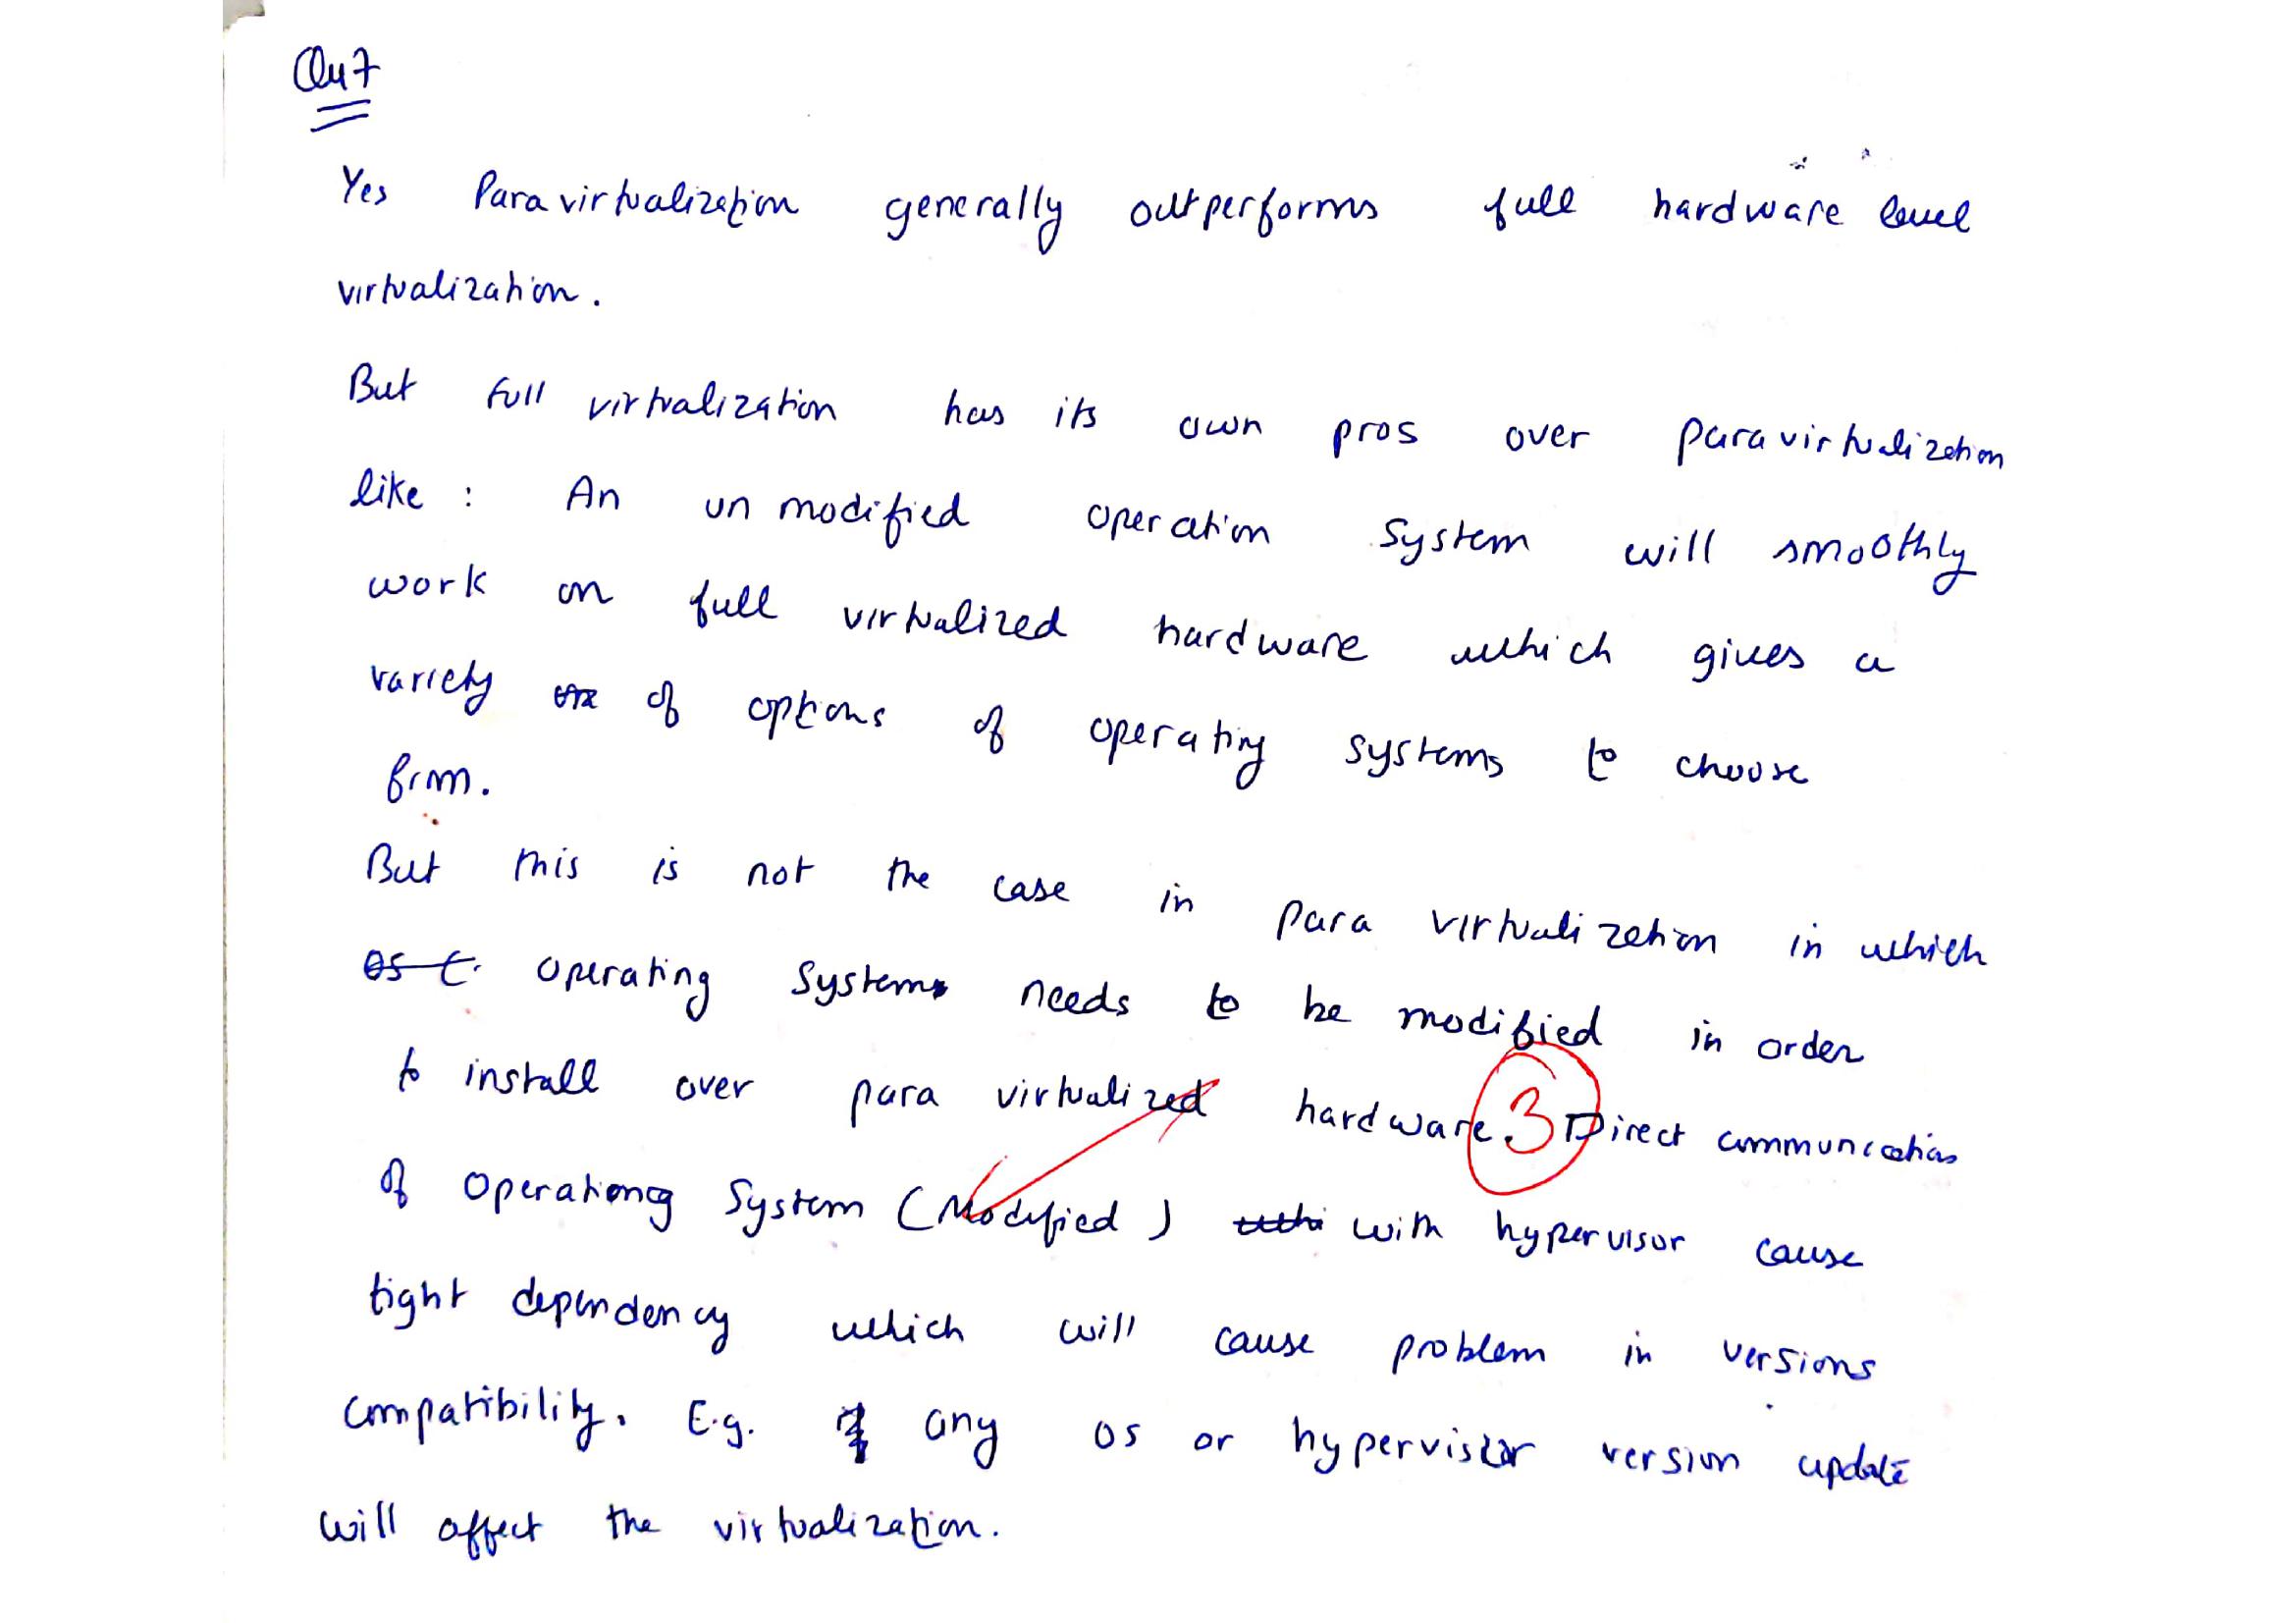 Qu7
Yes Paravirtualization generally outperforms full hardware level
virtualization.
But Full virtualization has its own pros over paravirtualization
like : An un modified operation System will smoothly
work on full virtualized hardware which gives a
variety of options of operating systems to choose
from.
But this is not the case in para virtualization in which
operating System needs to be modified in order
to install over para virtualized hardware. 3 Direct communication
of Operationg System (Modified) with hypervisor cause
tight dependency which will cause problem in versions
compatibility. E.g. any os or hypervisior version update
will affect the virtualization.